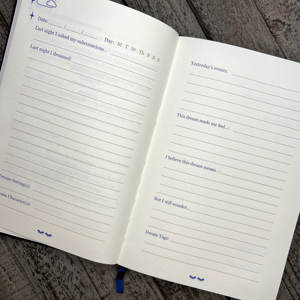 Date: / /
Day: M T W Th F S S
Last night I asked my subconscious...
Last night I dreamed
Dream Setting(s)
Dream Character(s)
Yesterday's events:
This dream made me feel...
I believe this dream means...
But I still wonder...
Dream Tags: